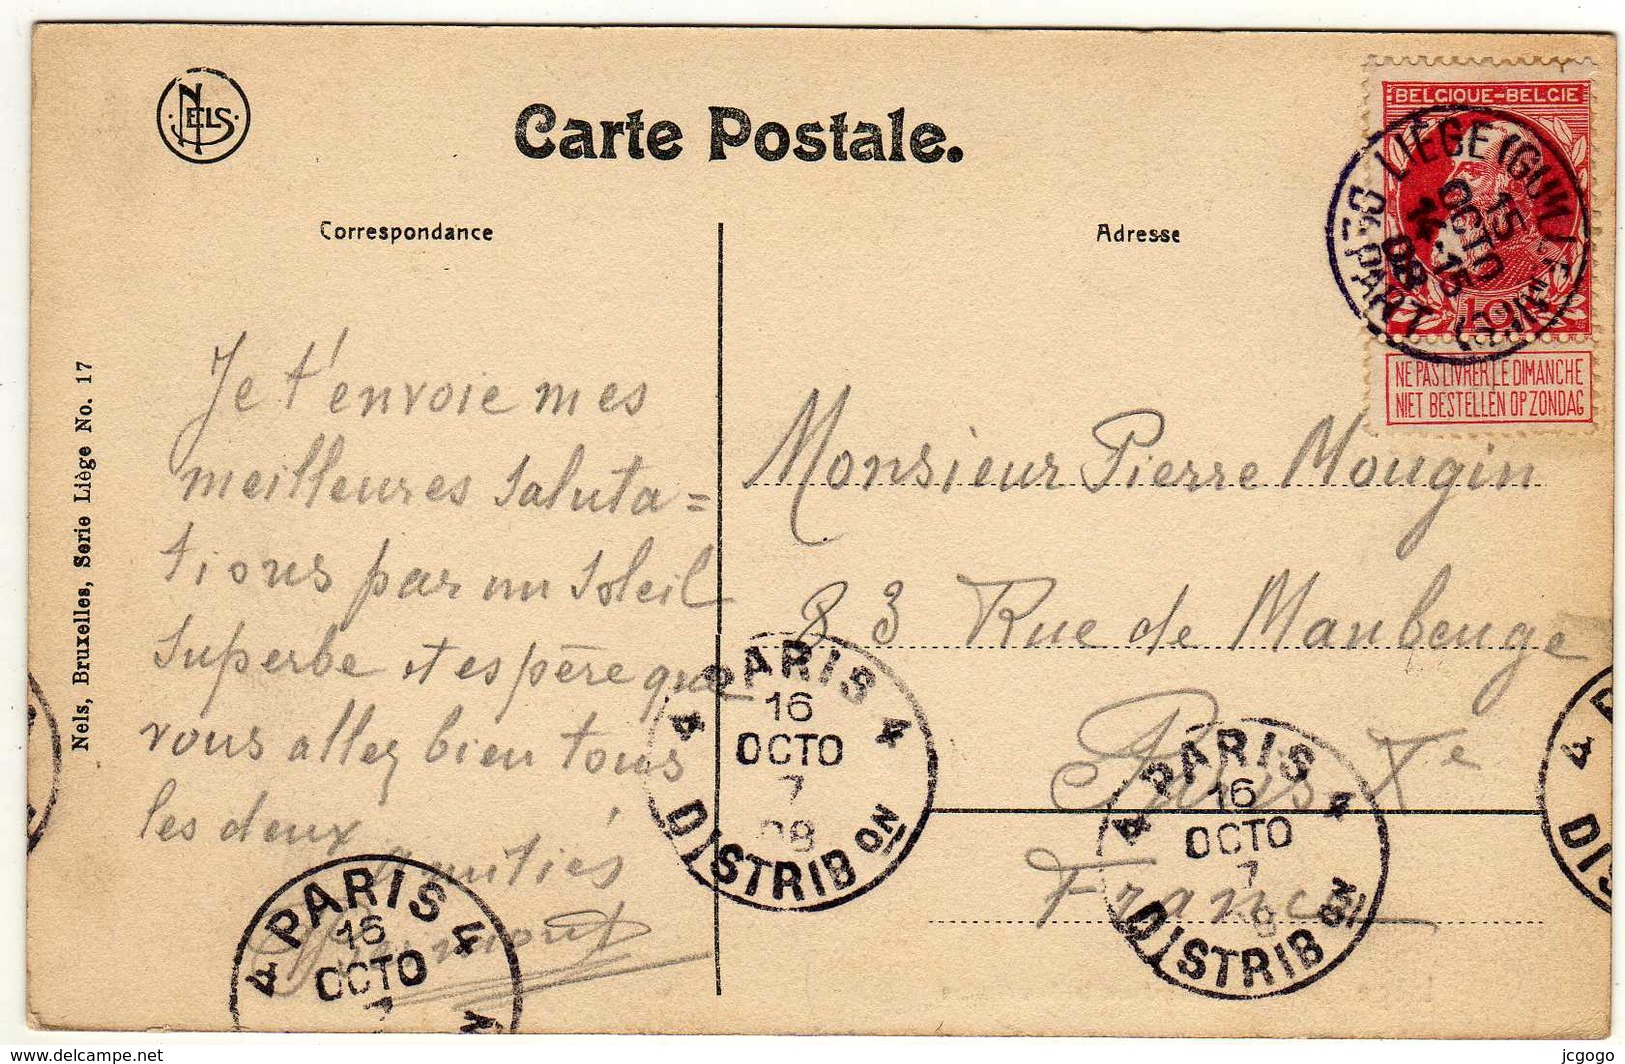 NELS
Carte Postale.
BELGIQUE-BELGIE
10
NE PAS LIVRER LE DIMANCHE
NIET BESTELLEN OP ZONDAG
LIÈGE (GUILLEMINS)
15
OCTO
14-15
08
DÉPART
Correspondance
Adresse
Je t'envoie mes
meilleures saluta=
tions par un soleil
superbe et espère que
vous allez bien tous
les deux
amitiés
Monsieur Pierre Mougin
83 Rue de Maubeuge
Paris Xe
France
Nels, Bruxelles, Serie Liège No. 17
4 PARIS 4
16
OCTO
7
08
DISTRIB ON
4 PARIS 4
16
OCTO
7
8
DISTRIB ON
4 PARIS 4
16
OCTO
7
4 P
DIS
www.delcampe.net
jcgogo